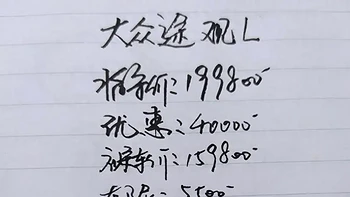 大众途观L
指导价:199800
优惠:40000
裸车价:159800
5500